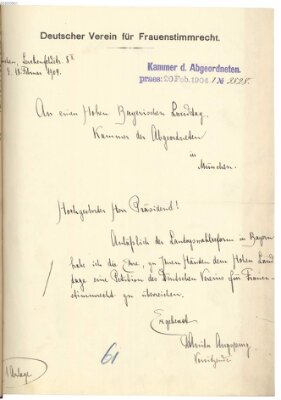 Deutscher Verein für Frauenstimmrecht.
Kammer d. Abgeordneten.
praes: 20 Feb. 1904 / №
Februar 1904.
An einen Hohen Bayerischen Landtag,
Kammer der Abgeordneten
in
München.
Hochgeehrter Herr Präsident!
Anläßlich der Landtagswahlreform in Bayern
habe ich die Ehre, zu Ihren Händen dem Hohen Land
tage eine Petition des Deutschen Vereins für Frauen
stimmrecht zu überreichen.
Ergebenst
Augspurg
Vorsitzende
61
1 Anlage